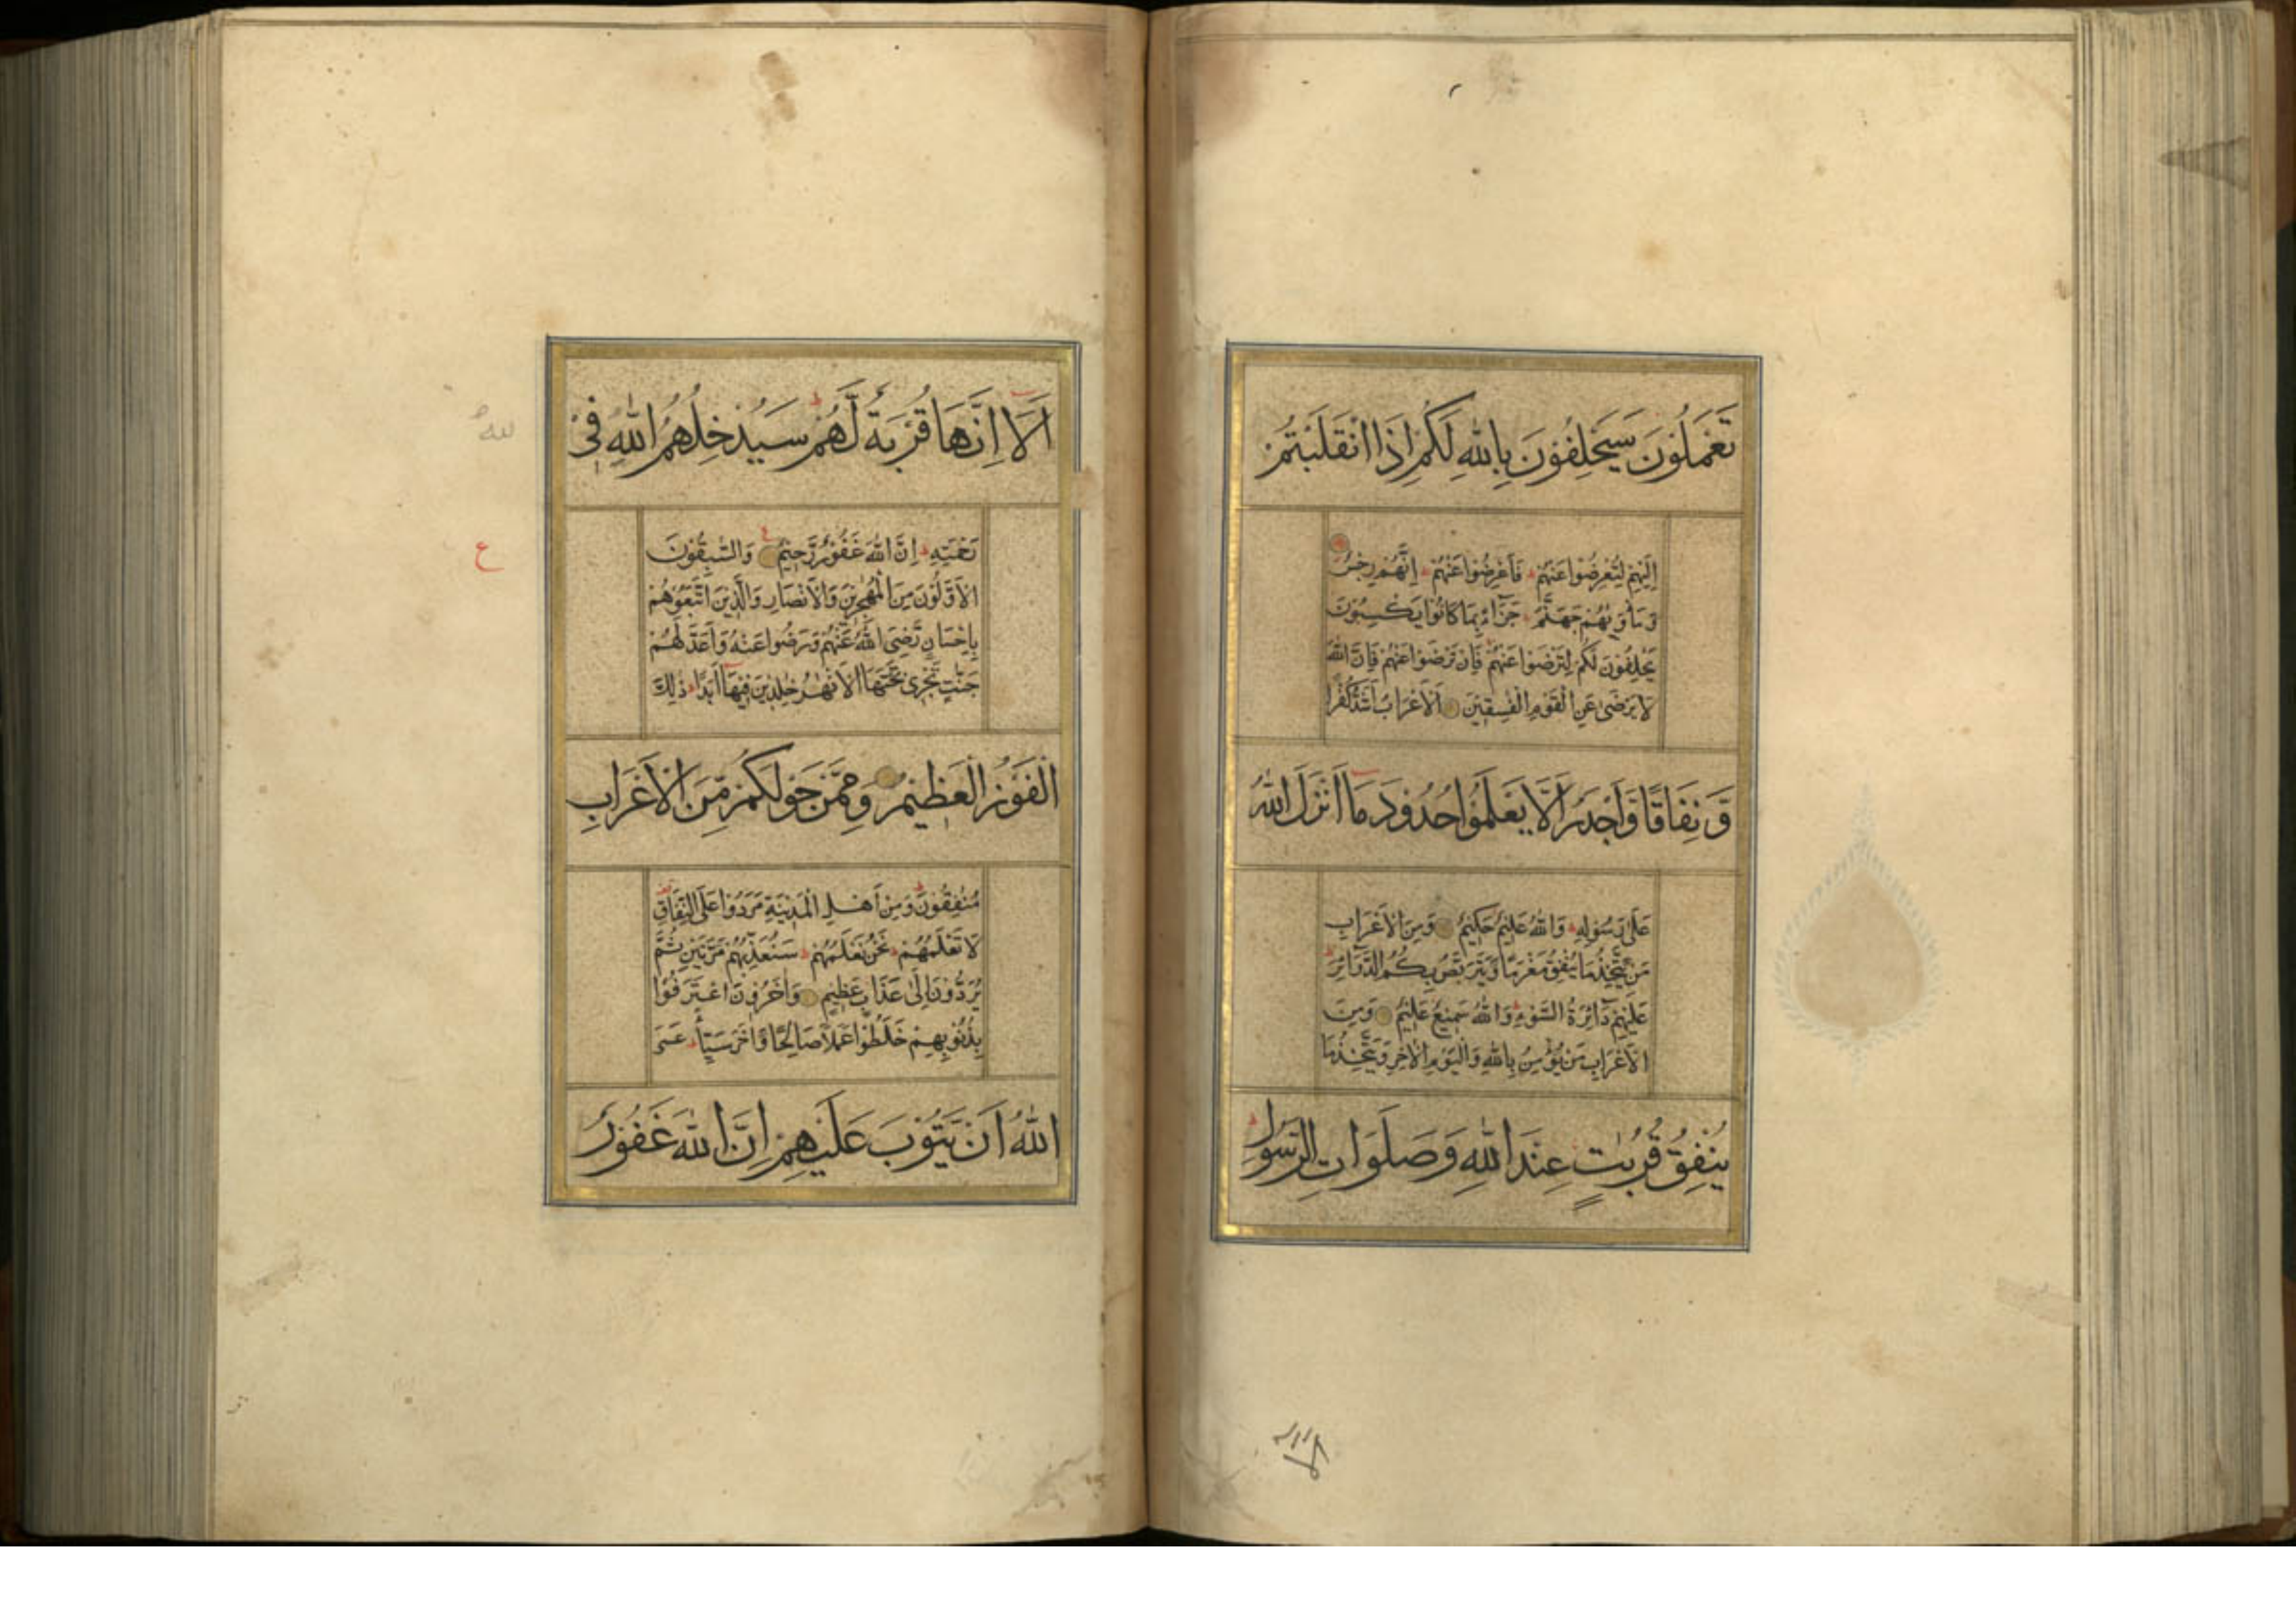 تَعْمَلُوْنَ سَيَحْلِفُوْنَ بِاللّٰهِ لَكُمْ اِذَا انْقَلَبْتُمْ
اِلَيْهِمْ لِتُعْرِضُوْا عَنْهُمْ فَاَعْرِضُوْا عَنْهُمْ اِنَّهُمْ رِجْسٌ
وَّمَأْوٰىهُمْ جَهَنَّمُ جَزَآءً بِمَا كَانُوْا يَكْسِبُوْنَ
يَحْلِفُوْنَ لَكُمْ لِتَرْضَوْا عَنْهُمْ فَاِنْ تَرْضَوْا عَنْهُمْ فَاِنَّ اللّٰهَ
لَا يَرْضٰى عَنِ الْقَوْمِ الْفٰسِقِيْنَ اَلْاَعْرَابُ اَشَدُّ كُفْرًا
وَّنِفَاقًا وَّاَجْدَرُ اَلَّا يَعْلَمُوْا حُدُوْدَ مَا اَنْزَلَ اللّٰهُ
عَلٰى رَسُوْلِهٖ وَاللّٰهُ عَلِيْمٌ حَكِيْمٌ وَمِنَ الْاَعْرَابِ
مَنْ يَّتَّخِذُ مَا يُنْفِقُ مَغْرَمًا وَّيَتَرَبَّصُ بِكُمُ الدَّوَآئِرَ
عَلَيْهِمْ دَآئِرَةُ السَّوْءِ وَاللّٰهُ سَمِيْعٌ عَلِيْمٌ وَمِنَ
الْاَعْرَابِ مَنْ يُّؤْمِنُ بِاللّٰهِ وَالْيَوْمِ الْاٰخِرِ وَيَتَّخِذُ مَا
يُنْفِقُ قُرُبٰتٍ عِنْدَ اللّٰهِ وَصَلَوَاتِ الرَّسُوْلِ
اَلَآ اِنَّهَا قُرْبَةٌ لَّهُمْ سَيُدْخِلُهُمُ اللّٰهُ فِيْ
رَحْمَتِهٖ اِنَّ اللّٰهَ غَفُوْرٌ رَّحِيْمٌ وَالسّٰبِقُوْنَ
ع
الْاَوَّلُوْنَ مِنَ الْمُهٰجِرِيْنَ وَالْاَنْصَارِ وَالَّذِيْنَ اتَّبَعُوْهُمْ
بِاِحْسَانٍ رَّضِيَ اللّٰهُ عَنْهُمْ وَرَضُوْا عَنْهُ وَاَعَدَّ لَهُمْ
جَنّٰتٍ تَجْرِيْ تَحْتَهَا الْاَنْهٰرُ خٰلِدِيْنَ فِيْهَآ اَبَدًا ذٰلِكَ
الْفَوْزُ الْعَظِيْمُ وَمِمَّنْ حَوْلَكُمْ مِّنَ الْاَعْرَابِ
مُنٰفِقُوْنَ وَمِنْ اَهْلِ الْمَدِيْنَةِ مَرَدُوْا عَلَى النِّفَاقِ
لَا تَعْلَمُهُمْ نَحْنُ نَعْلَمُهُمْ سَنُعَذِّبُهُمْ مَّرَّتَيْنِ ثُمَّ
يُرَدُّوْنَ اِلٰى عَذَابٍ عَظِيْمٍ وَاٰخَرُوْنَ اعْتَرَفُوْا
بِذُنُوْبِهِمْ خَلَطُوْا عَمَلًا صَالِحًا وَّاٰخَرَ سَيِّئًا عَسَى
اللّٰهُ اَنْ يَّتُوْبَ عَلَيْهِمْ اِنَّ اللّٰهَ غَفُوْرٌ